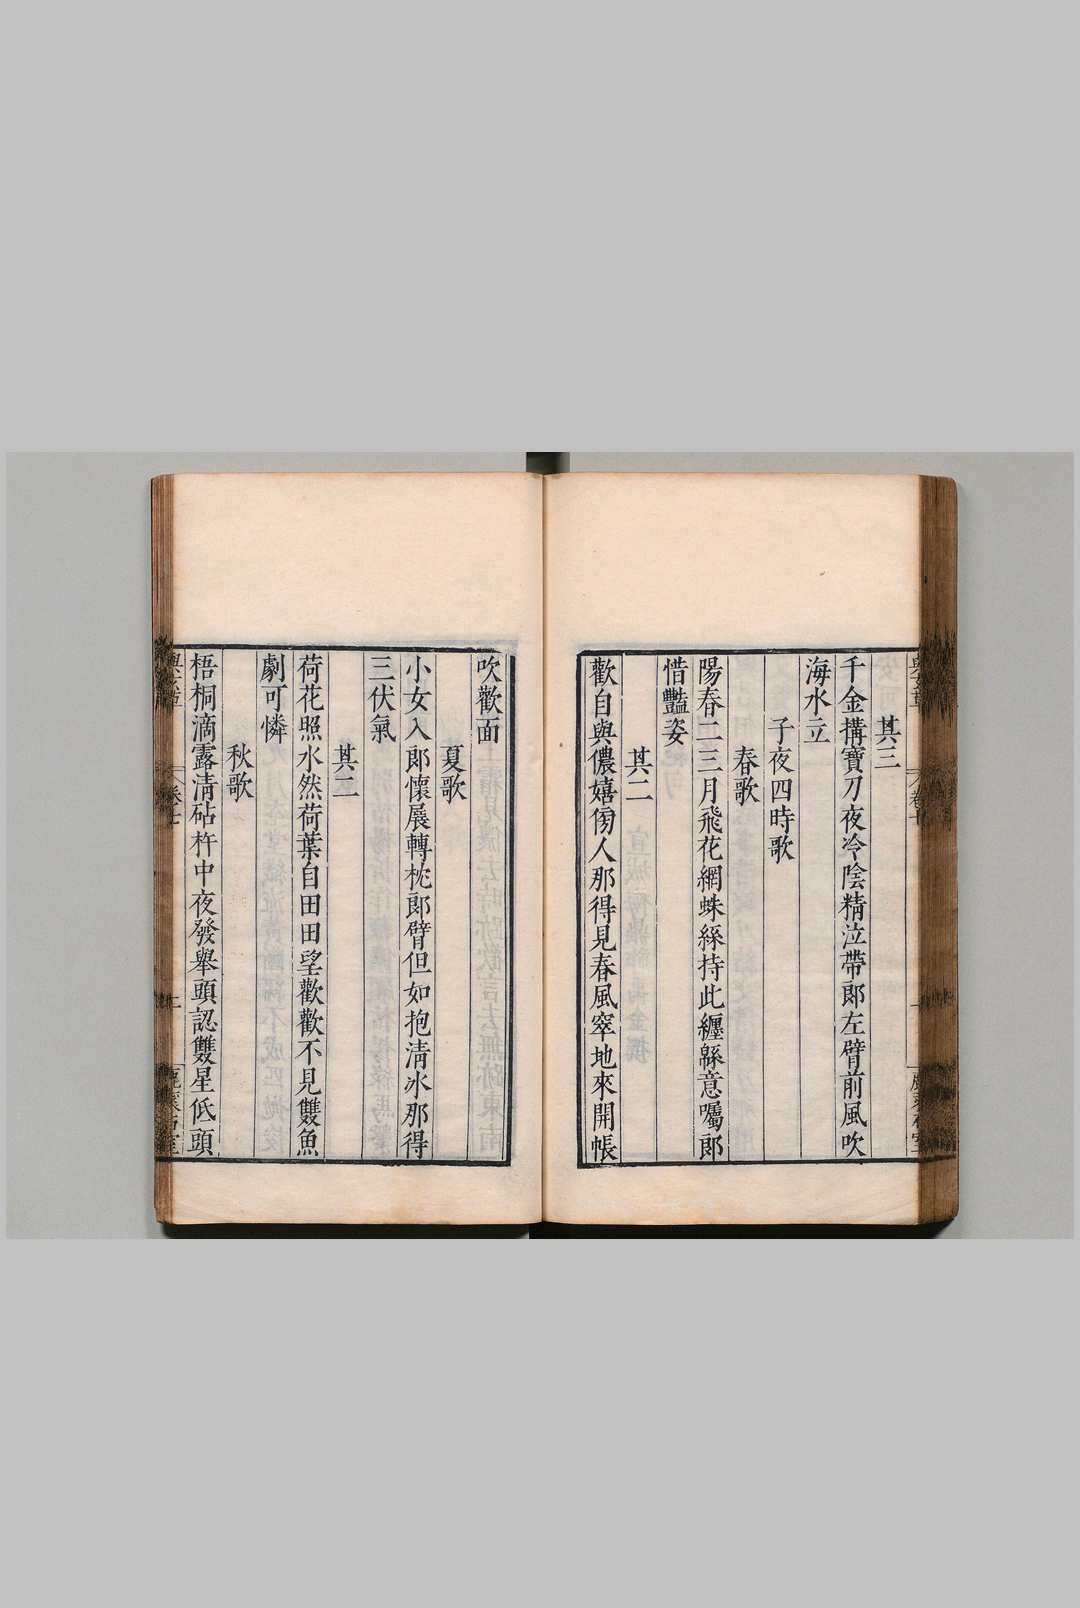 其三
千金搆寶刀夜冷陰精泣帶郎左臂前風吹
海水立
子夜四時歌
春歌
陽春二三月飛花網蛛絲持此纏緜意囑郎
惜豔姿
其二
歡自與儂嬉傍人那得見春風窣地來開帳
吹歡面
夏歌
小女入郎懷展轉枕郎臂但如抱清冰那得
三伏氣
其二
荷花照水然荷葉自田田望歡歡不見雙魚
劇可憐
秋歌
梧桐滴露清砧杵中夜發舉頭認雙星低頭